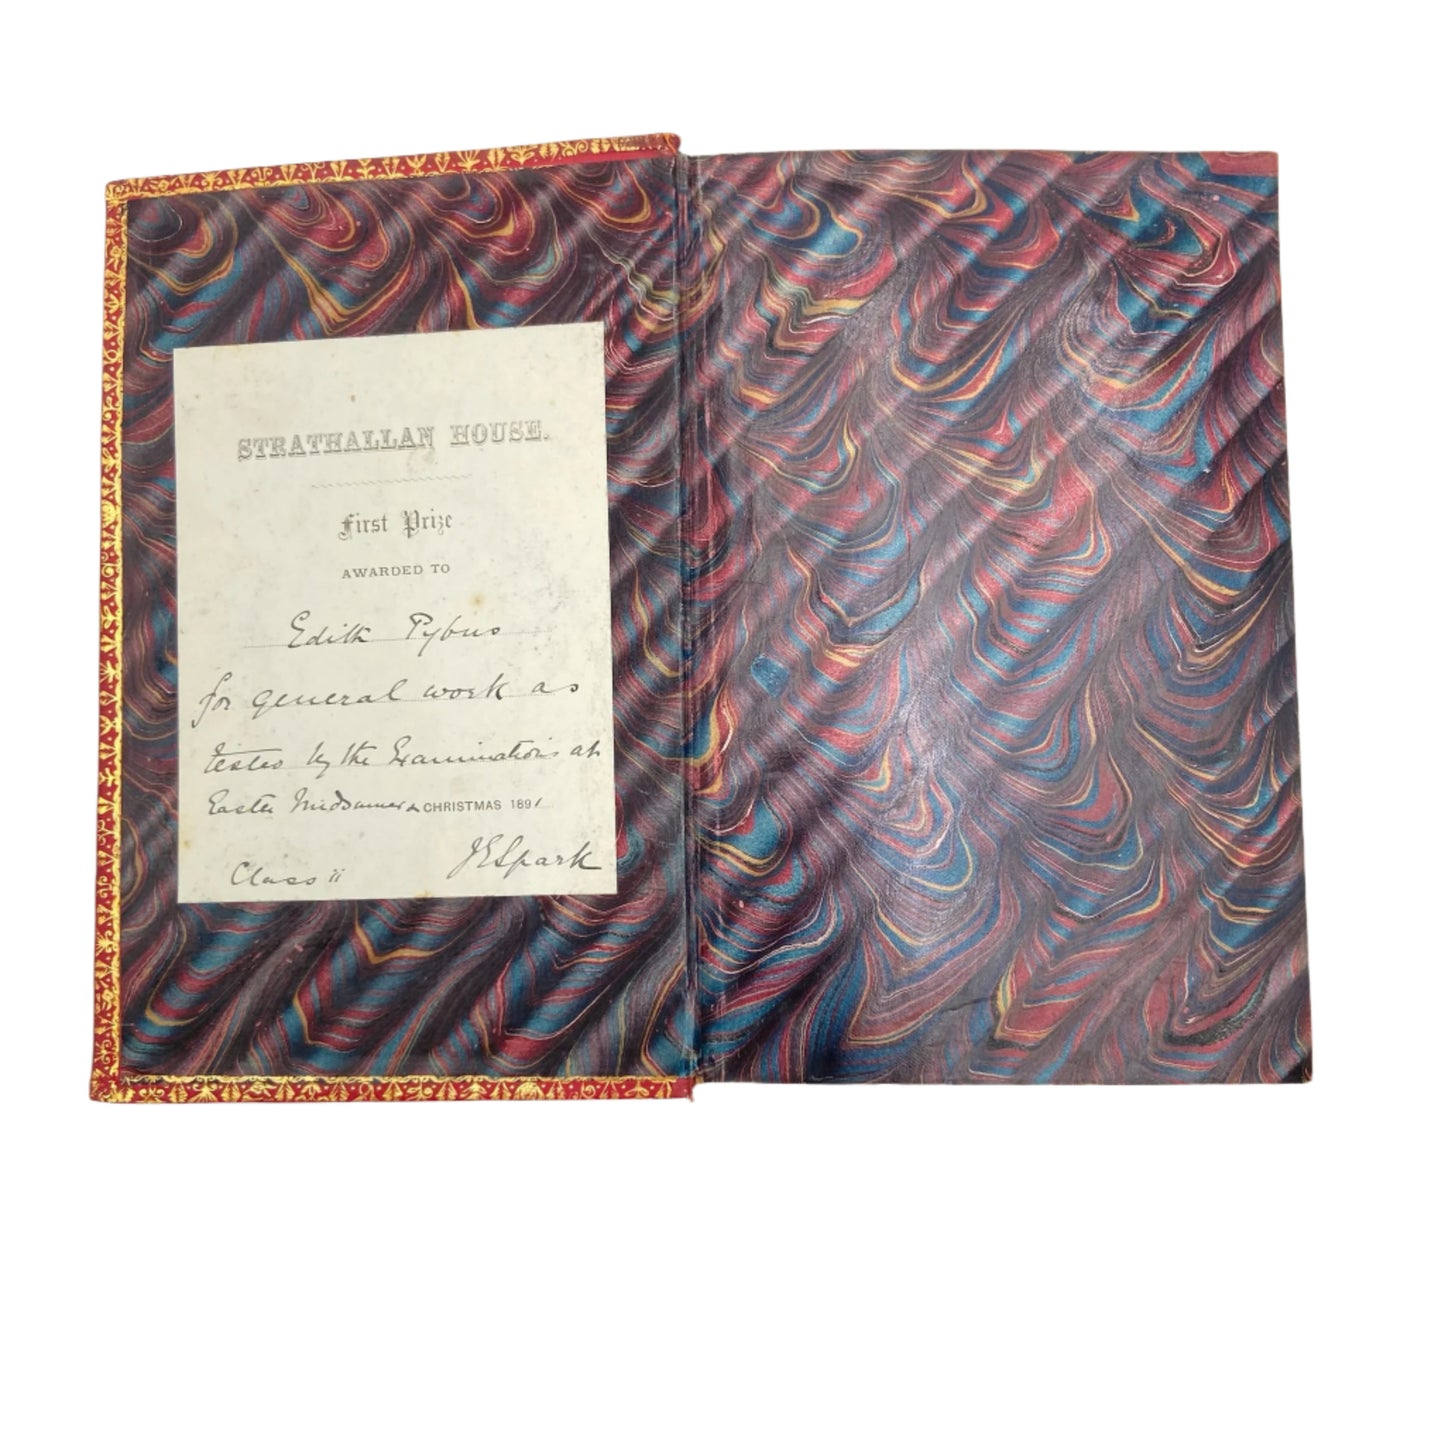 STRATHALLAN HOUSE.
First Prize
AWARDED TO
Edith Pybus
for general work as
tested by the Examinations at
Easter Midsummer & CHRISTMAS 1891
Class ii
JESpark